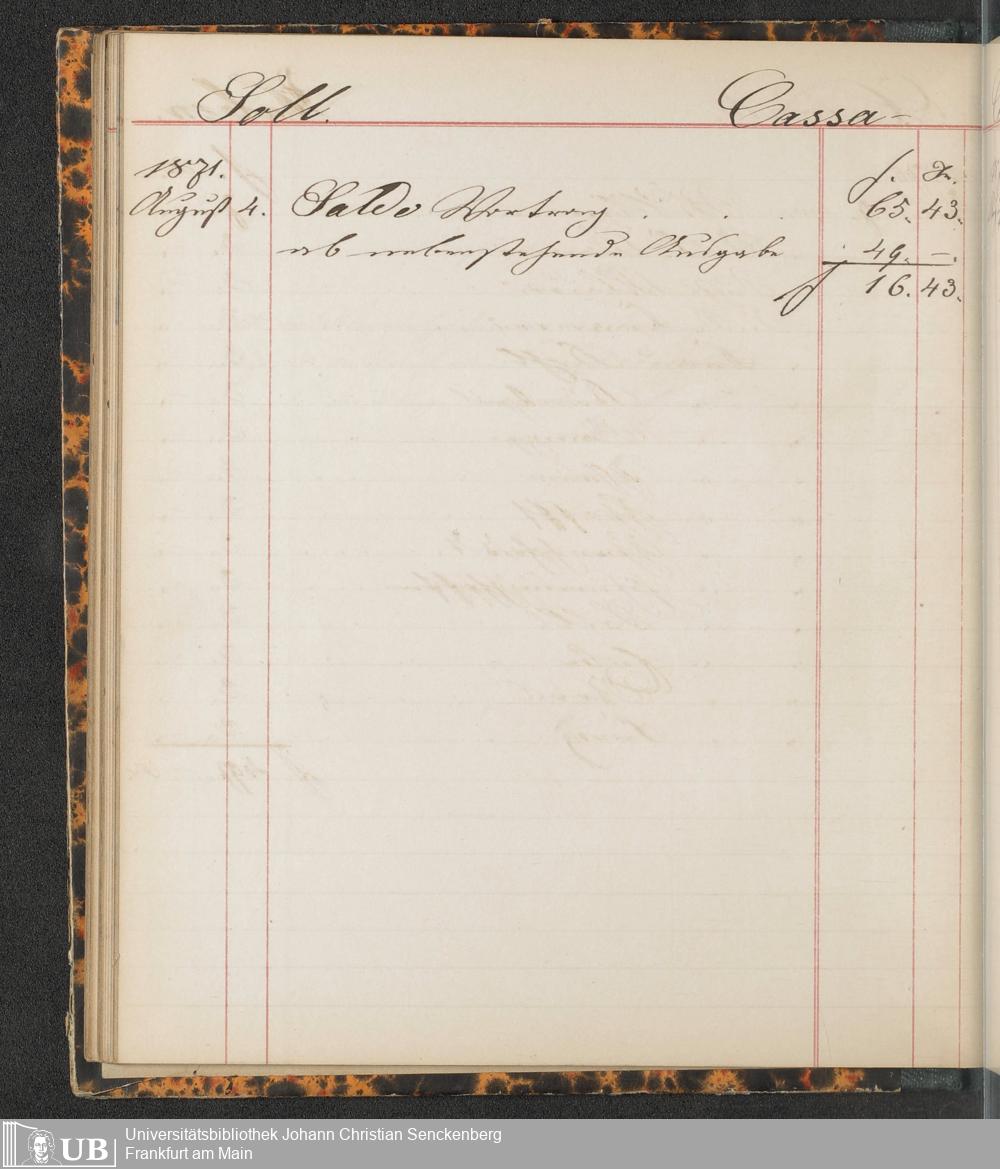 Soll. Cassa-
1871. f. Xr.
August 4. Saldo Vortrag . . . 65. 43.
ab nebenstehende Ausgabe . 49. -.
f 16. 43.
UB Universitätsbibliothek Johann Christian Senckenberg
Frankfurt am Main